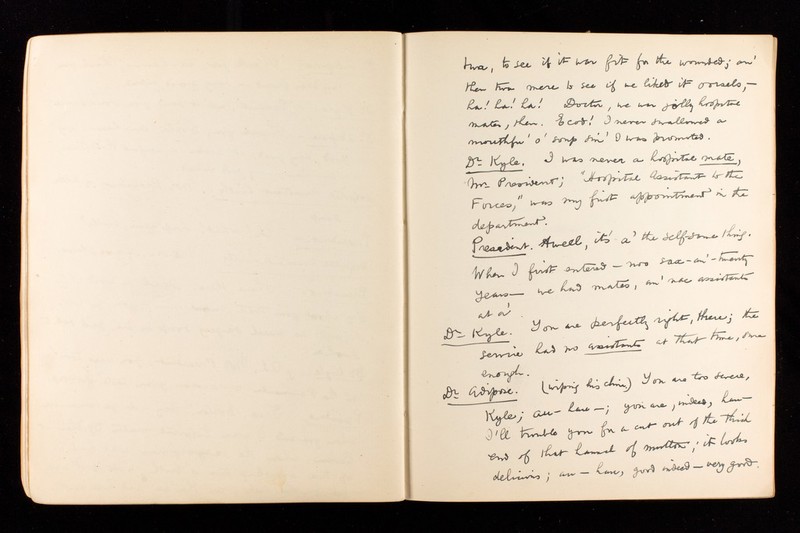 twa, to see if it war fit for the wounded; an'
then twa mere to see if we liked it oorsels,—
ha! ha! ha! Doctor, we war jolly hospital
mates, then. Ecod! I never swallowed a
mouthfu' o' soup sin' I was promoted.
Dr Kyle. I was never a hospital mate,
Mr President; "Hospital Assistant to the
Forces," was my first appointment in the
department.
President. Aweel, its a' the self-same thing.
When I first entered — noo sax-an'-twenty
years — we had mates, an' nae assistants
at a'.
Dr Kyle. You are perfectly right, there; the
service had no assistants at that time, sure
enough.
Dr Adipose. (wiping his chin) You are too severe,
Kyle; au — haw —; you are, indeed, haw —
I'll trouble you for a cut out of the thick
end of that haunch of mutton; it looks
delicious; au — haw, good indeed — very good.